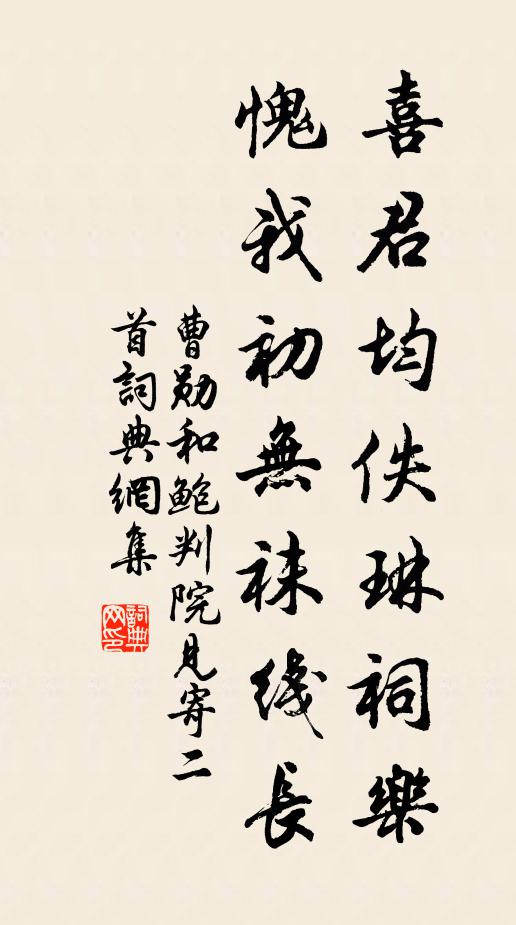 喜君均佚琳祠樂
愧我初無袜线長
曹勋和鲍判院見寄二
首詞典網集
詞典
网印